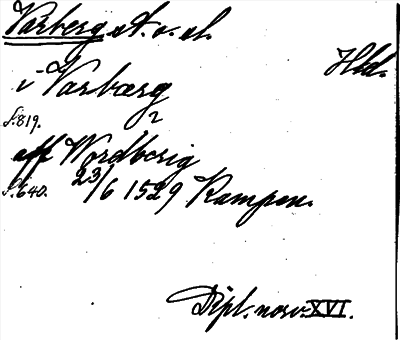 Varberg, st. o. sl.
Hld.
i Varbærg
s. 819. 2
aff Wordberig
s. 640. 23/6 1529 Kampen.
Dipl. norv. XVI.